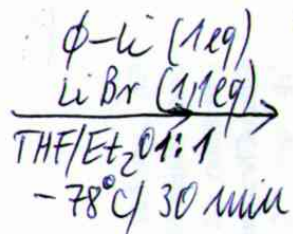 ϕ-Li (1eq)
LiBr (1,1eq)
THF/Et₂O 1:1
-78°C/30 min